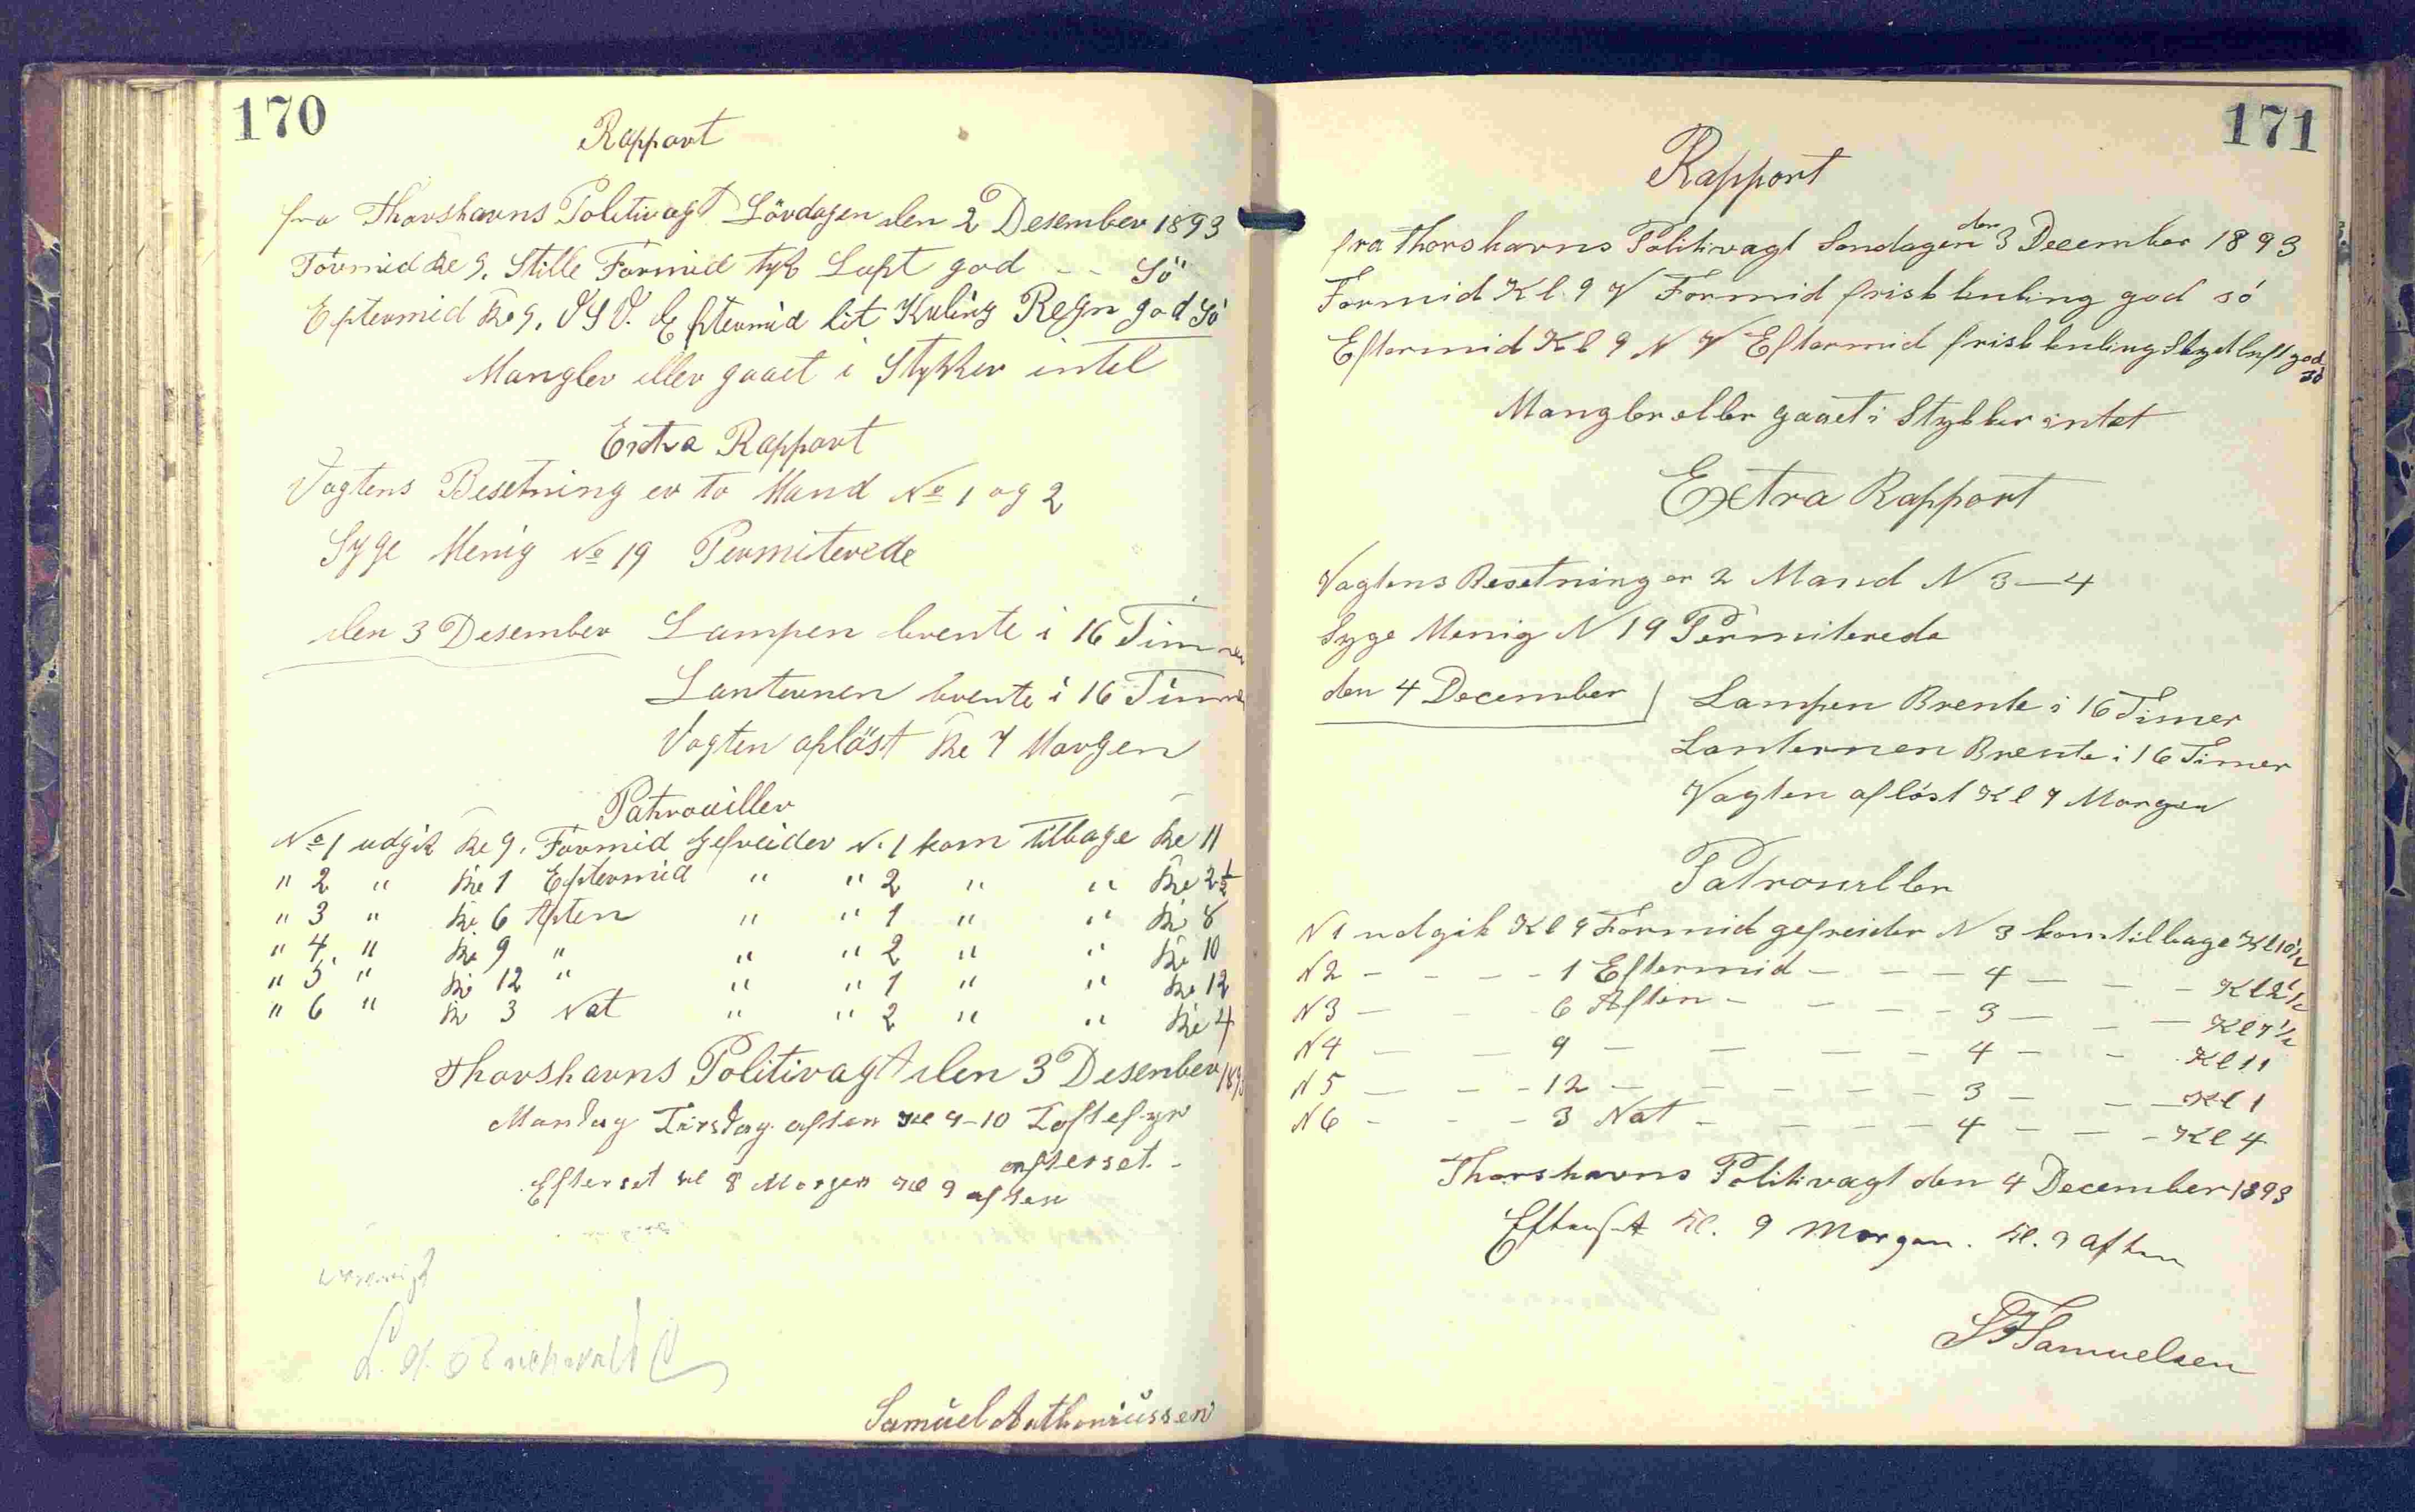 170
Rapport
fra Thorshavns Politivagt Lördagen den 2 Desember 1893
Formid Kl 9. Stille Formid tyk Luft god - - Sö
Eftermid Kl 9. VSV. Eftermid lit Kuling Regn god Sö
Mangler eller gaaet i Stykker intet
Extra Rapport
Vagtens Besetning er to Mand No 1 og 2
Syge Menig No 19 Permiterede
den 3 Desember Lampen brente i 16 Timer
Lanternen brente i 16 Timer
Vagten aflöst Kl 7 Morgen
Patrouiller
No 1 udgik Kl 9. Formid Gefreider N. 1 kom tilbage Kl 11
" 2 " Kl 1 Eftermid " " 2 " " Kl 2½
" 3 " Kl 6 Aften " " 1 " " Kl 8
" 4. " Kl 9 " " " 2 " " Kl 10
" 5 " Kl 12 " " " 1 " " Kl 12
" 6 " Kl 3 Nat " " 2 " " Kl 4
Thorshavns Politivagt den 3 Desember 1893
Mandag Tirsdag aften Kl 9-10 Toftefyr
efterset.
Efterset Kl 8 Morgen Kl 9 aften
Samuel Anthoniussen
171
Rapport
fra Thorshavns Politivagt Söndagen den 3 December 1893
Formid Kl. 9 V Formid frisk kuling god só
Eftermid Kl 9 N V Eftermid frisk kuling Skyet luft god só
Mangler eller gaaet i Stykker intet
Extra Rapport
Vagtens Besetning er 2 Mand N 3-4
Syge Menig N 19 Permiterede
den 4 December Lampen Brente i 16 Timer
Lanternen Brente i 16 Timer
Vagten aflóst Kl 7 Morgen
Patrouller
N 1 udgik Kl 9 Formid gefreider N 3 kom tilbage Kl 10½
N2 - - - - 1 Eftermid - - - 4 - - - Kl 2½
N3 - - - 6 Aften - - - - 3 - - - Kl 7½
N4 - - 9 - - - - 4 - - Kl 11
N5 - - - 12 - - - - - 3 - - - Kl 1
N6 - - - 3 Nat - - - - 4 - - - Kl 4
Thorshavns Politivagt den 4 December 1893
Efterset Kl. 9 Morgen. Kl. 9 aften
SFSamuelsen